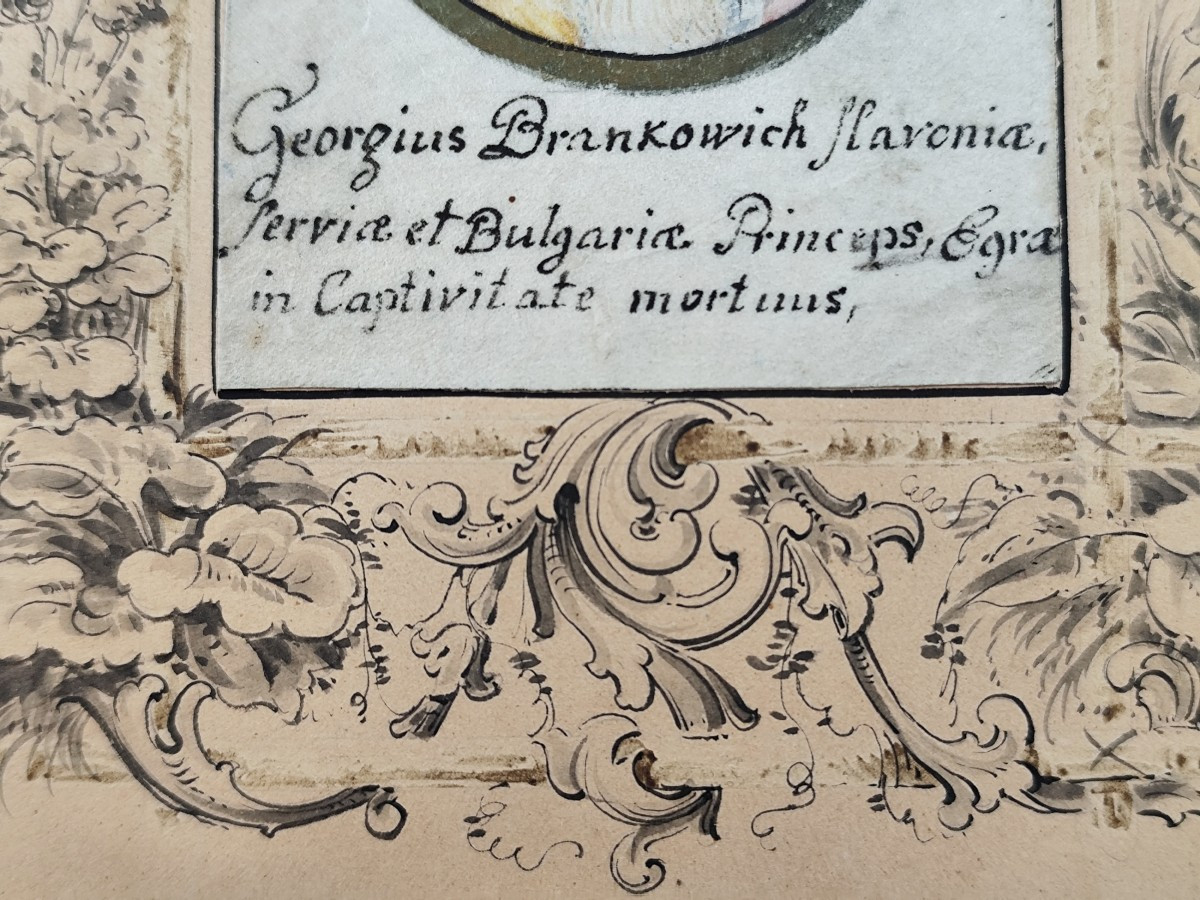 Georgius Brankowich ſlavoniæ,
ſerviæ et Bulgariæ Princeps, Egræ
in Captivitate mortuus,